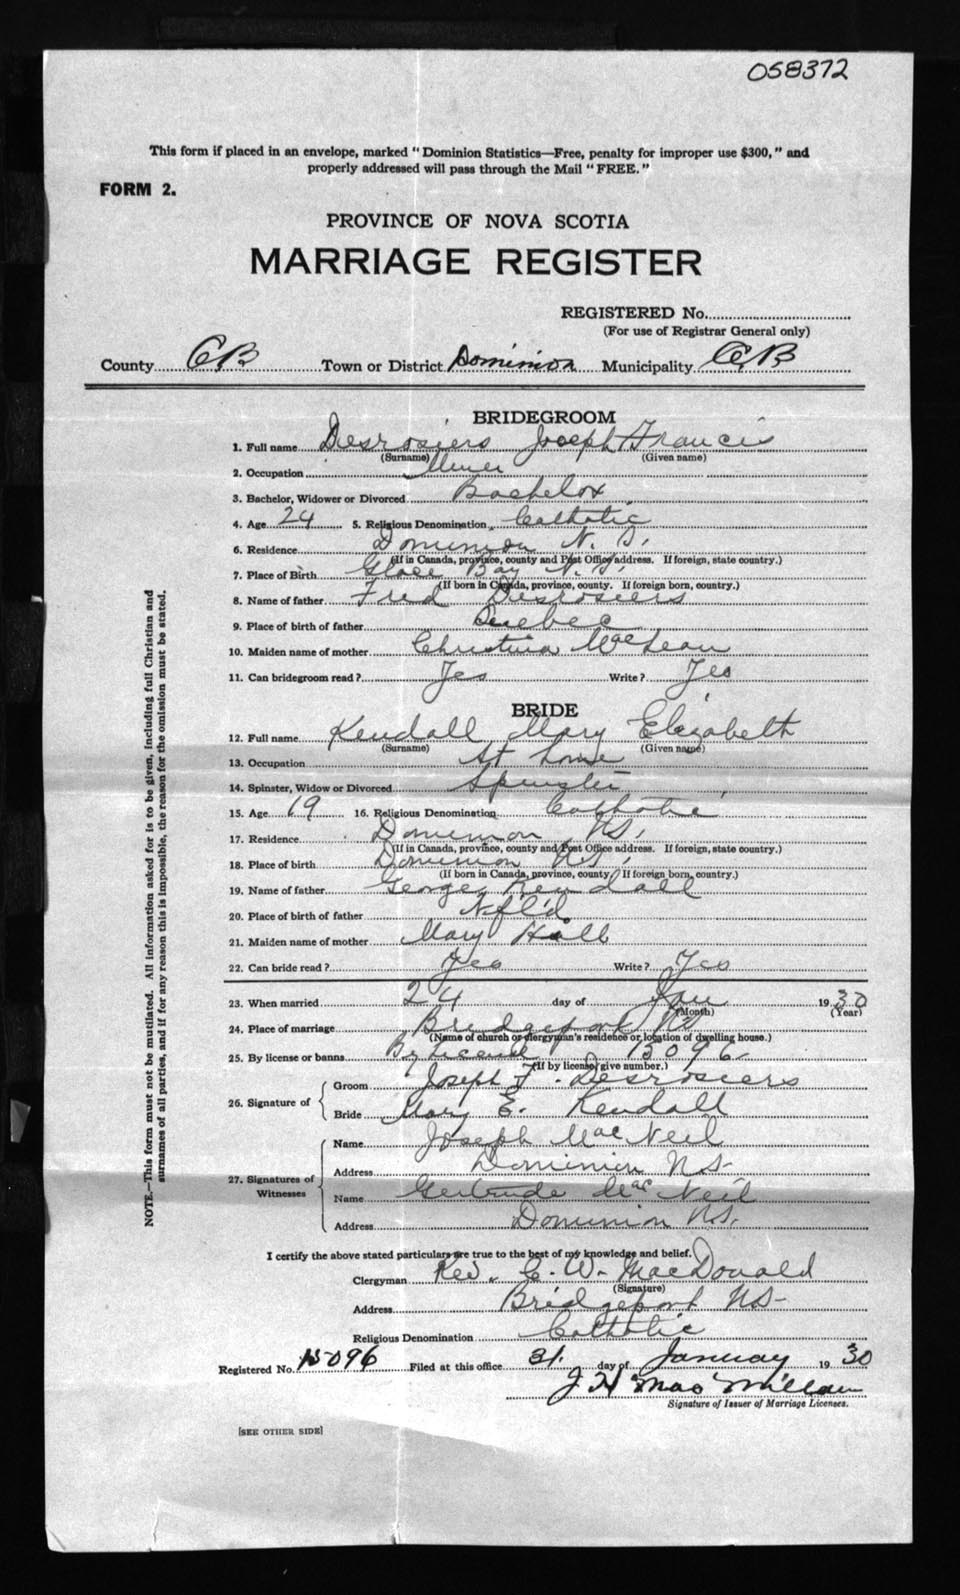 058372
This form if placed in an envelope, marked "Dominion Statistics—Free, penalty for improper use $300," and
properly addressed will pass through the Mail "FREE."
FORM 2.
PROVINCE OF NOVA SCOTIA
MARRIAGE REGISTER
REGISTERED No.
(For use of Registrar General only)
County C.B Town or District Dominion Municipality C.B
BRIDEGROOM
1. Full name Desrosiers Joseph Francis
(Surname) (Given name)
2. Occupation Miner
3. Bachelor, Widower or Divorced Bachelor
4. Age 24 5. Religious Denomination Catholic
6. Residence Dominion N.S.
(If in Canada, province, county and Post Office address. If foreign, state country.)
7. Place of Birth Glace Bay N.S.
(If born in Canada, province, county. If foreign born, country.)
8. Name of father Fred Desrosiers
9. Place of birth of father Quebec
10. Maiden name of mother Christina MacLean
11. Can bridegroom read? Yes Write? Yes
BRIDE
12. Full name Kendall Mary Elizabeth
(Surname) (Given name)
13. Occupation At home
14. Spinster, Widow or Divorced Spinster
15. Age 19 16. Religious Denomination Catholic
17. Residence Dominion N.S.
(If in Canada, province, county and Post Office address. If foreign, state country.)
18. Place of birth Dominion N.S.
(If born in Canada, province, county. If foreign born, country.)
19. Name of father George Kendall
20. Place of birth of father Nfl'd
21. Maiden name of mother Mary Hall
22. Can bride read? Yes Write? Yes
23. When married 24 day of Jan 1930
(Month) (Year)
24. Place of marriage Bridgeport NS
(Name of church or clergyman's residence or location of dwelling house.)
25. By license or banns By License 15096
(If by license, give number.)
26. Signature of
Groom Joseph F. Desrosiers
Bride Mary E. Kendall
27. Signatures of Witnesses
Name Joseph MacNeil
Address Dominion N.S.
Name Gertrude MacNeil
Address Dominion N.S.
I certify the above stated particulars are true to the best of my knowledge and belief.
Clergyman Rev. C. W. MacDonald
(Signature)
Address Bridgeport N.S.
Religious Denomination Catholic
Registered No. 15096 Filed at this office 31. day of January 1930
J H MacMillan
Signature of Issuer of Marriage Licenses.
[SEE OTHER SIDE]
NOTE.—This form must not be mutilated. All information asked for is to be given, including full Christian and
surnames of all parties, and if for any reason this is impossible, the reason for the omission must be stated.